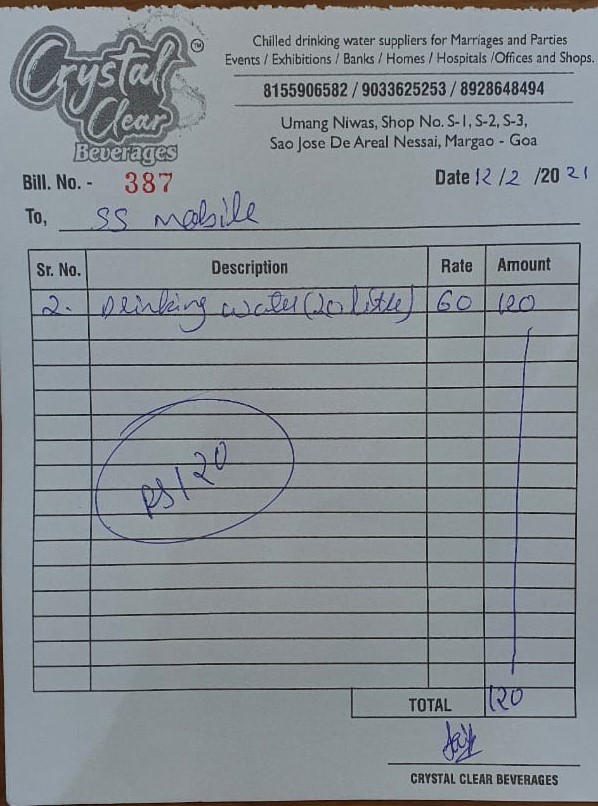 Crystal
Clear
Beverages
TM
Chilled drinking water suppliers for Marriages and Parties
Events / Exhibitions / Banks / Homes / Hospitals /Offices and Shops.
8155906582 / 9033625253 / 8928648494
Umang Niwas, Shop No. S-1, S-2, S-3,
Sao Jose De Areal Nessai, Margao - Goa
Bill. No. - 387
Date 12/2 /2021
To, SS mobile
Sr. No. Description Rate Amount
2. Drinking water (20 litre) 60 120
RS 120
TOTAL 120
CRYSTAL CLEAR BEVERAGES